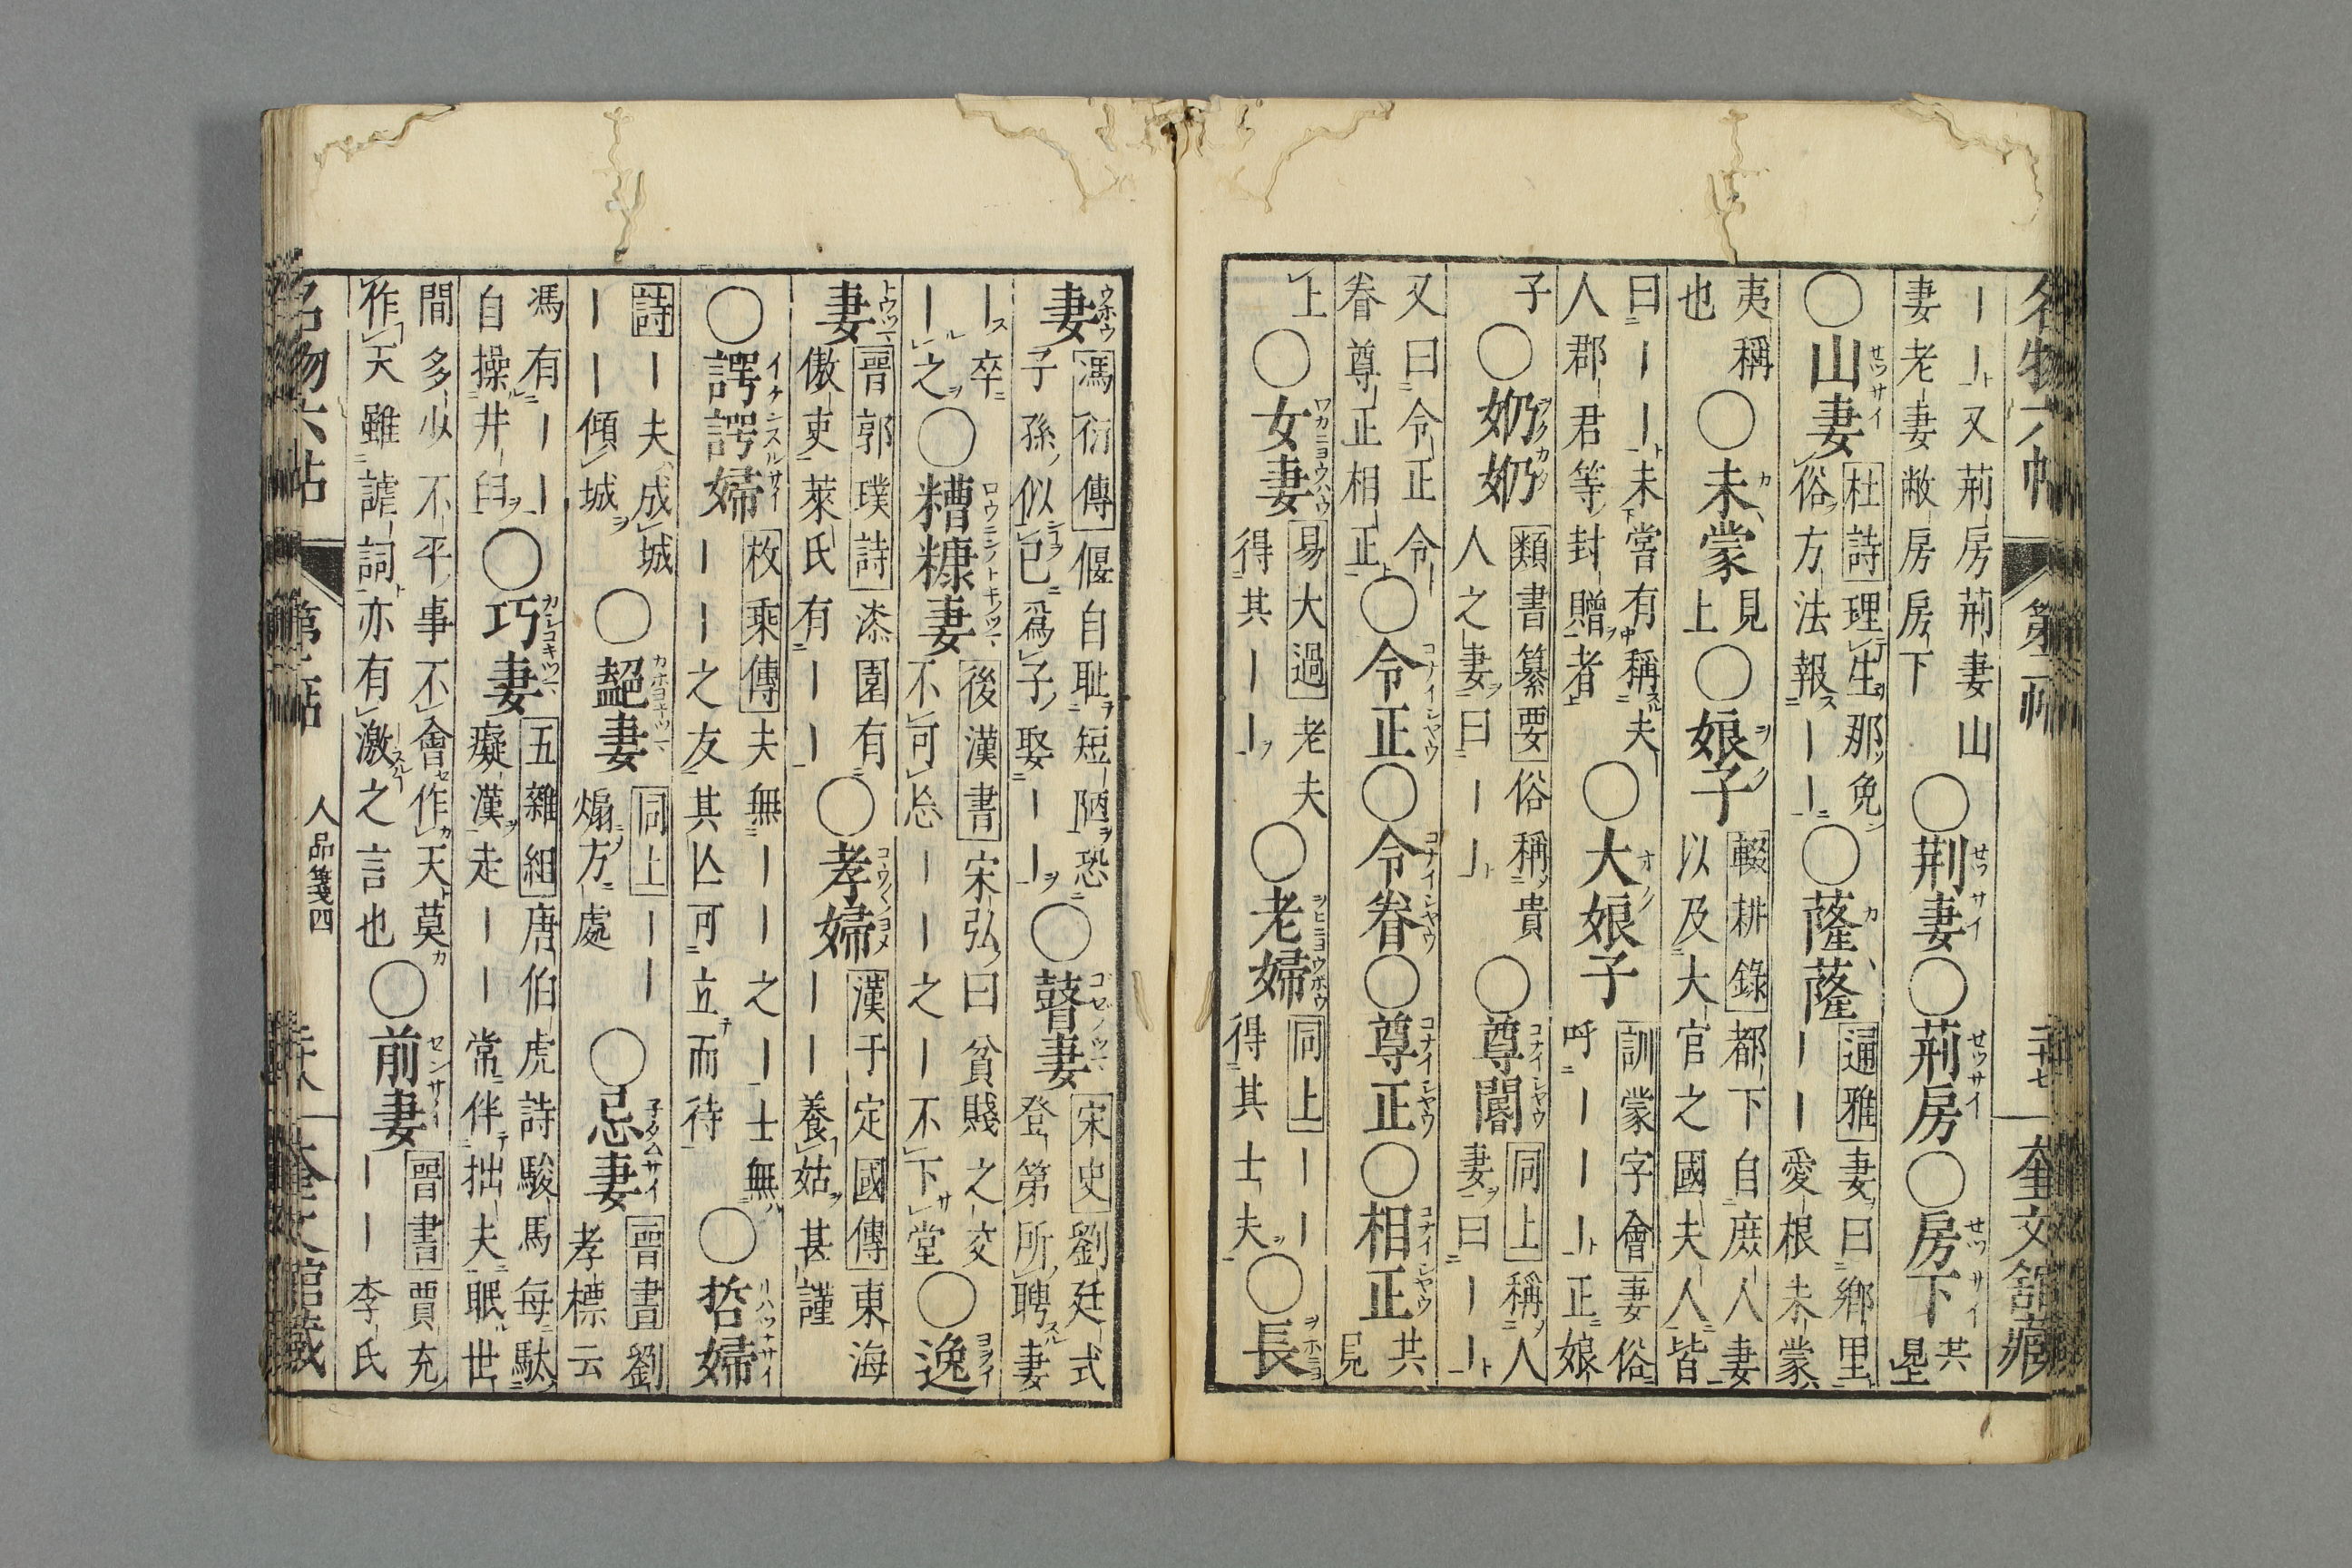 名物六帖 第二帖 二十七 奎文館藏
｜｜又荊房荊妻山
妻老妻敝房房下 ○荊妻○荊房○房下 共見上
○山妻 杜詩 理生那免俗方法報｜｜ ○薩薩 通雅 妻曰鄉里｜｜愛根未蒙
夷稱也 ○未蒙 見上 ○娘子 輟耕錄 都下自庶人妻以及大官之國夫人皆
曰｜｜未嘗有稱夫人郡君等封贈者 ○大娘子 訓蒙字會 妻俗呼｜｜｜正娘
子 ○妳妳 類書纂要 俗稱貴人之妻曰｜｜ ○尊閫 同上 稱人妻曰｜｜
又曰令正令眷尊正相正 ○令正○令眷○尊正○相正 共見
上 ○女妻 易大過 老夫得其｜｜ ○老婦 同上 ｜｜得其士夫 ○長
妻 馮衍傳 偃自恥短陋恐子孫似已爲子娶｜｜ ○瞽妻 宋史 劉廷式登第所聘妻
｜卒｜之 ○糟糠妻 後漢書 宋弘曰貧賤之交不可忘｜｜之｜不下堂 ○逸
妻 晉郭璞詩 漆園有傲吏萊氏有｜｜ ○孝婦 漢于定國傳 東海｜｜養姑甚謹
○諤諤婦 枚乘傳 夫無｜｜之｜士無｜｜之友其亡可立而待 ○哲婦
詩 ｜夫成城｜｜傾城 ○豔妻 同上 ｜｜煽方處 ○忌妻 晉書 劉孝標云
馮有｜｜自操井臼 ○巧妻 五雜組 唐伯虎詩駿馬每馱癡漢走｜｜常伴拙夫眠世
間多少不平事不會作天莫作天雖謔詞亦有激之言也 ○前妻 晉書 賈充｜｜李氏
名物六帖 第二帖 人品箋四 奎文館藏